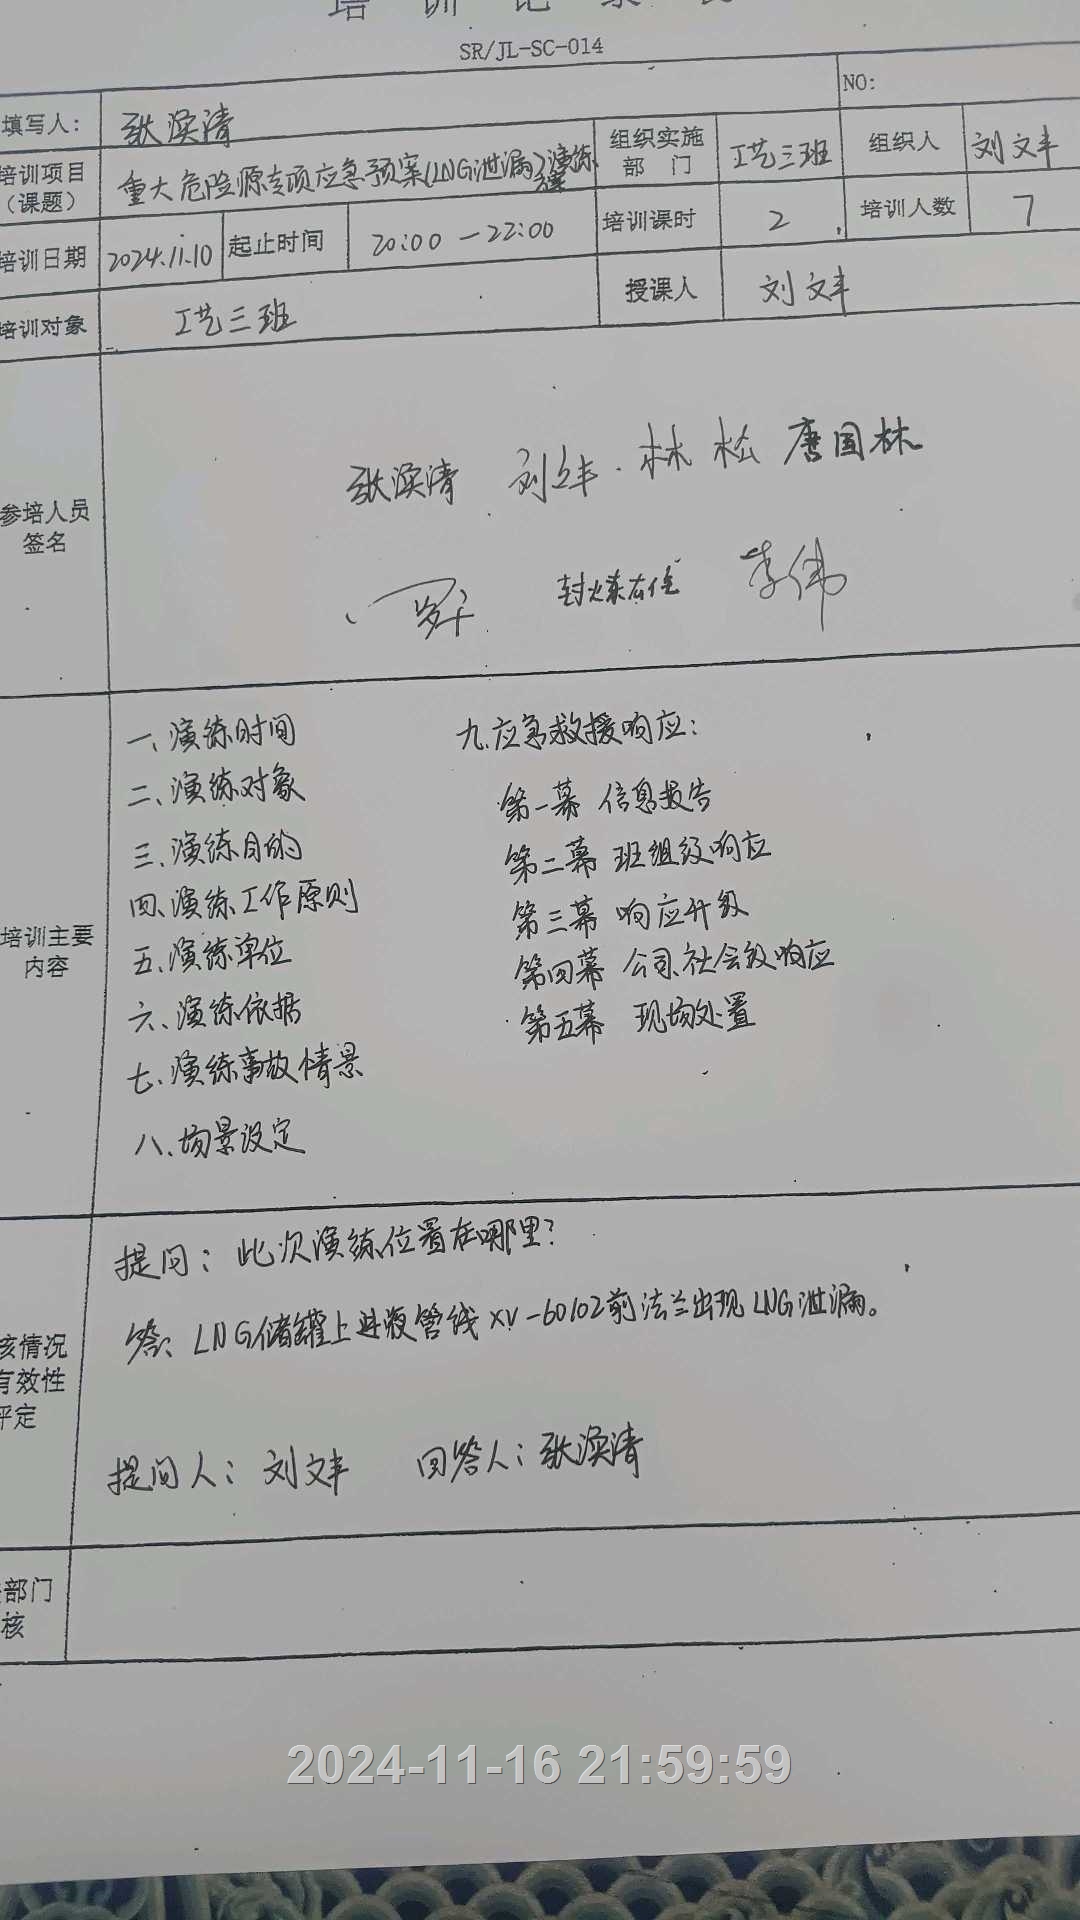 培训记录表
SR/JL-SC-014
NO:
填写人： 张涣清
培训项目（课题） 重大危险源专项应急预案(LNG泄漏)演练 组织实施部门 工艺三班 组织人 刘文丰
培训日期 2024.11.10 起止时间 20:00 — 22:00 培训课时 2 培训人数 7
培训对象 工艺三班 授课人 刘文丰
参培人员签名
张涣清 刘文丰 林松 唐国林
李伟
培训主要内容
一、演练时间
二、演练对象
三、演练目的
四、演练工作原则
五、演练单位
六、演练依据
七、演练事故情景
八、场景设定
九、应急救援响应：
第一幕 信息报告
第二幕 班组级响应
第三幕 响应升级
第四幕 公司、社会级响应
第五幕 现场处置
核情况
有效性
评定
提问：此次演练位置在哪里？
答：LNG储罐上进液管线XV-60102前法兰出现LNG泄漏。
提问人：刘文丰 回答人：张涣清
部门
核
2024-11-16 21:59:59